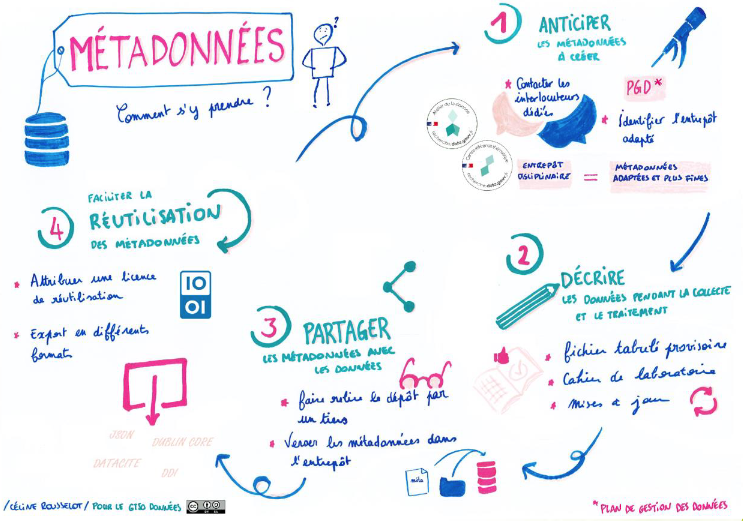 MÉTADONNÉES
Comment s'y prendre ?
?
1
ANTICIPER
LES MÉTADONNÉES
À CRÉER
* Contacter les
interlocuteurs
dédiés
PGD*
* Identifier l'entrepôt
adapté
ENTREPÔT
DISCIPLINAIRE
=
MÉTADONNÉES
ADAPTÉES ET PLUS FINES
2
DÉCRIRE
LES DONNÉES PENDANT LA COLLECTE
ET LE TRAITEMENT
* fichier tabulé provisoire
* Cahier de laboratoire
* mises à jour
3
PARTAGER
LES MÉTADONNÉES AVEC
LES DONNÉES
* faire relire le dépôt par
un tiers
* Verser les métadonnées dans
l'entrepôt
méta
4
FACILITER LA
RÉUTILISATION
DES MÉTADONNÉES
* Attribuer une licence
de réutilisation
* Export en différents
formats
IO
OI
JSON
DUBLIN CORE
DATACITE
DDI
/CÉLINE ROUSSELOT/ POUR LE GTSO DONNÉES
* PLAN DE GESTION DES DONNÉES